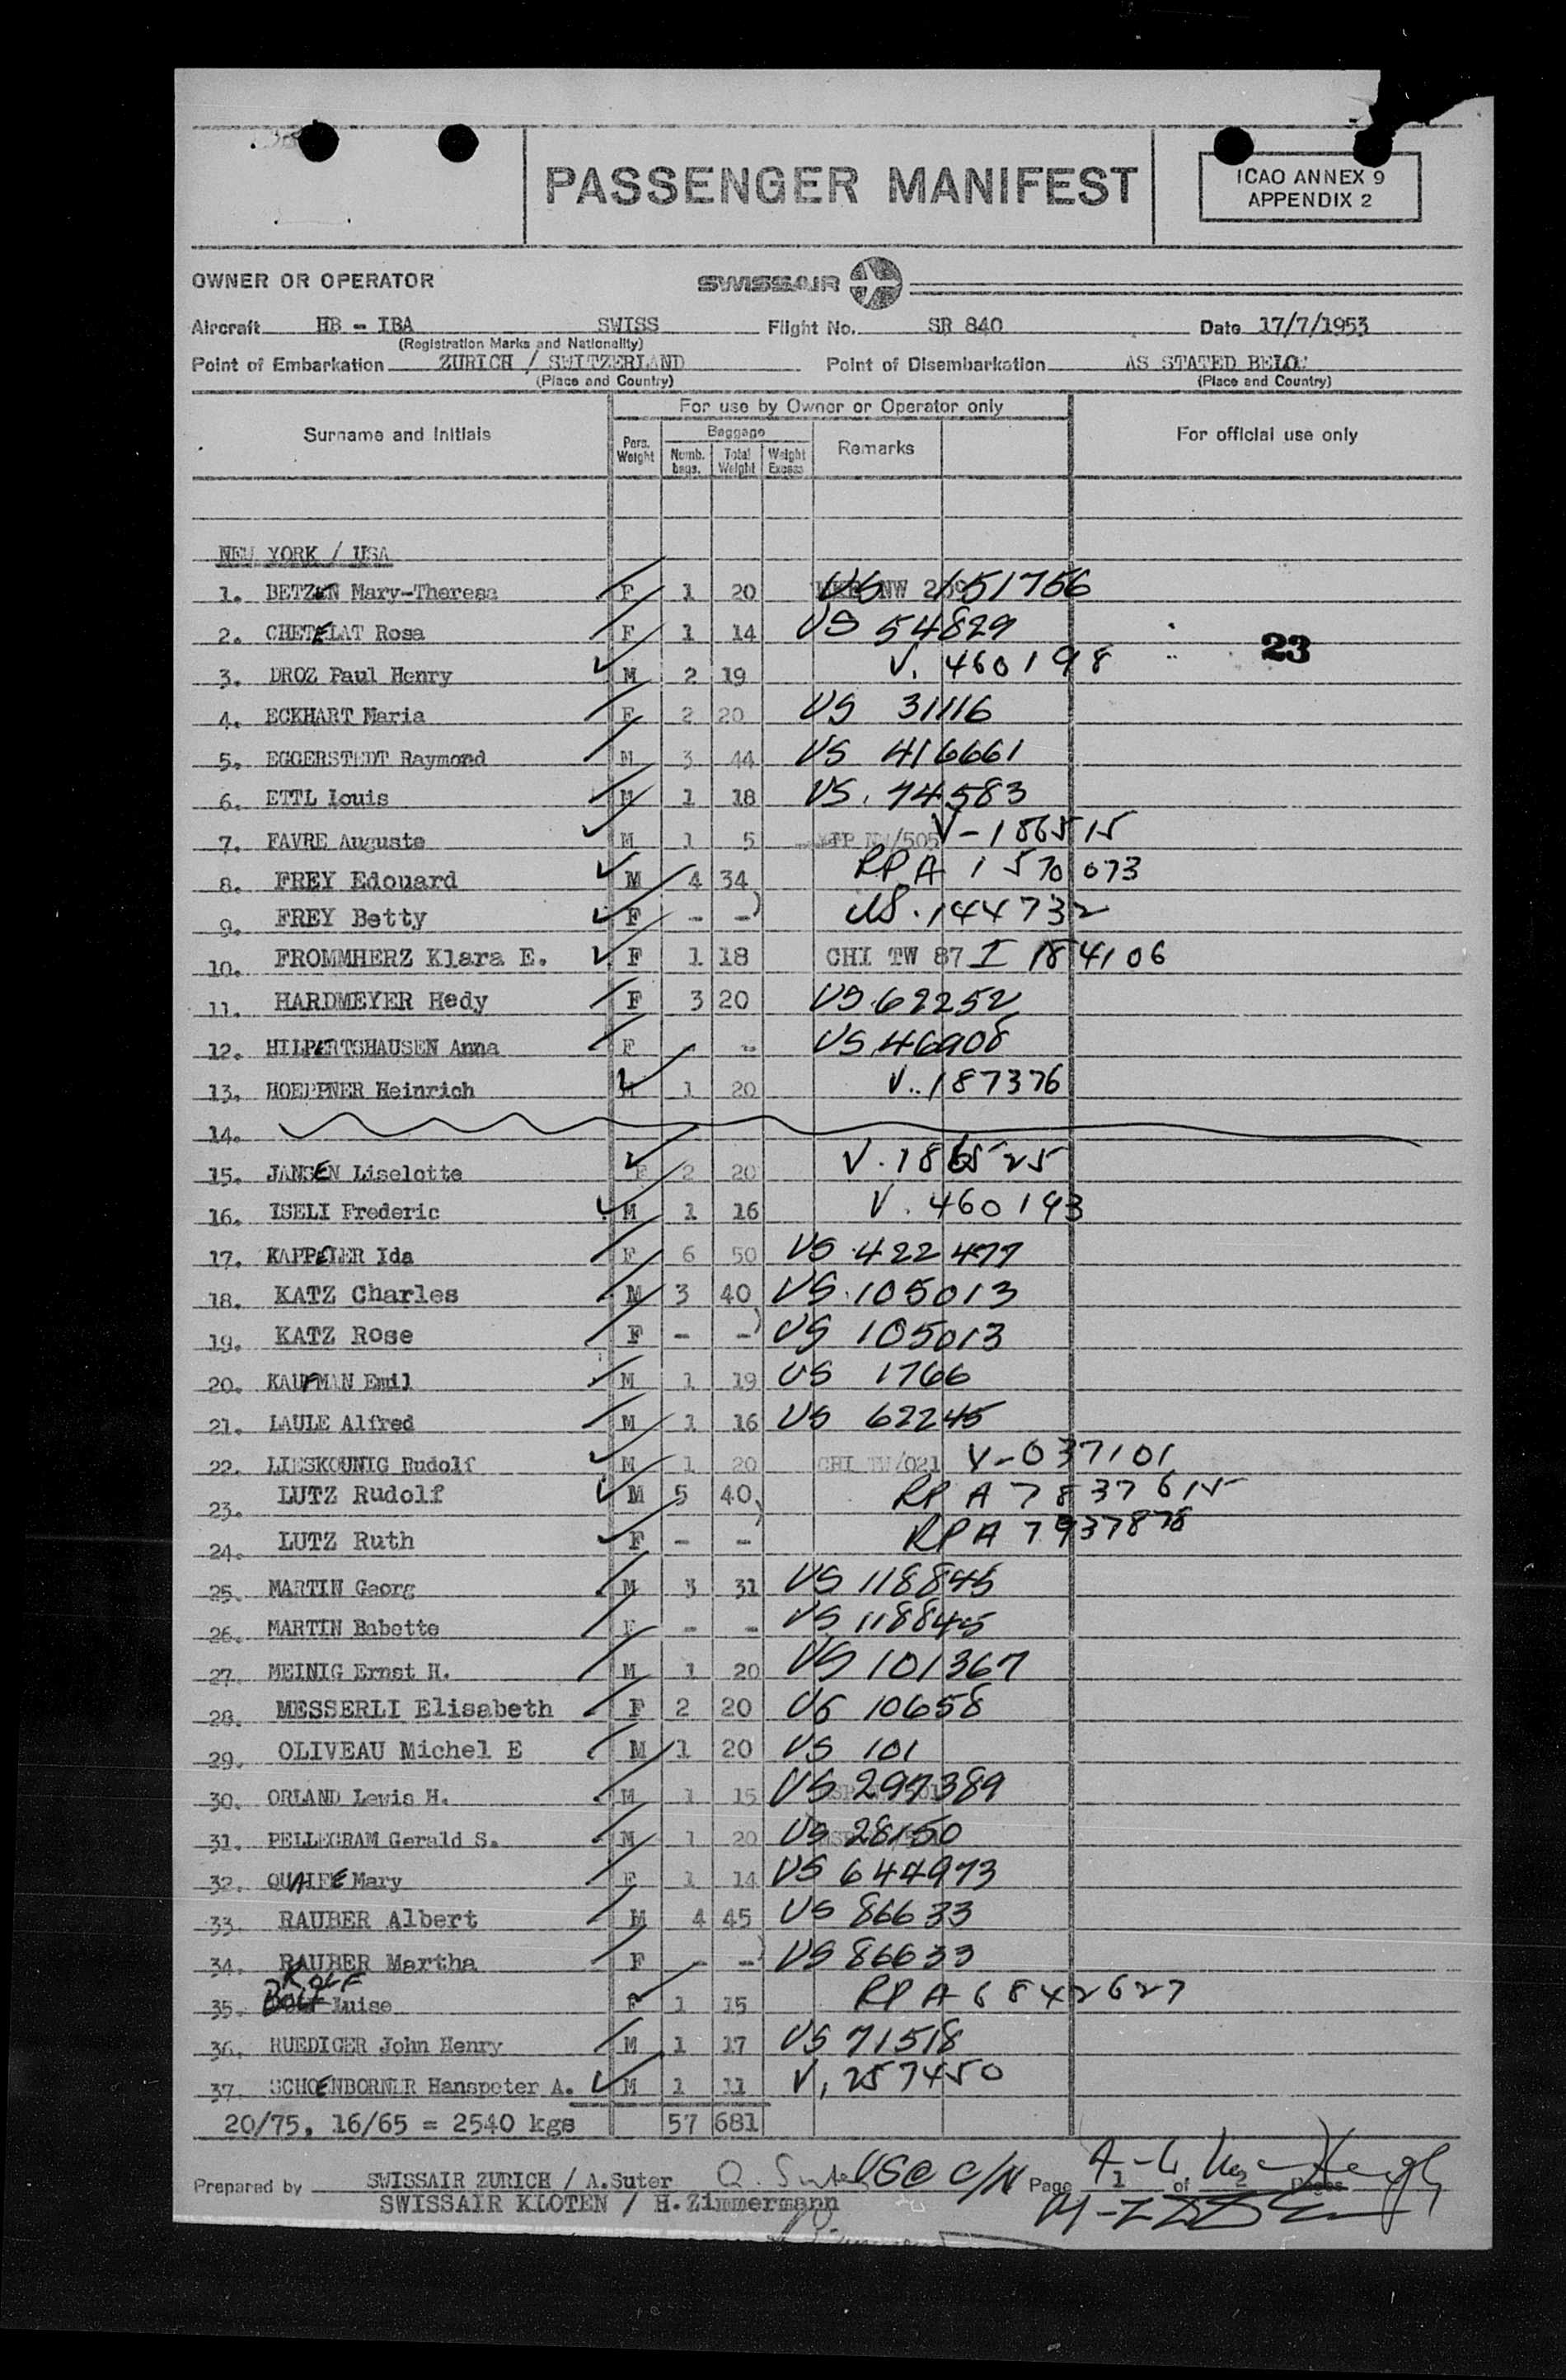 PASSENGER MANIFEST
ICAO ANNEX 9
APPENDIX 2
OWNER OR OPERATOR SWISSAIR
Aircraft HB - IBA SWISS Flight No. SR 840 Date 17/7/1953
(Registration Marks and Nationality)
Point of Embarkation ZURICH / SWITZERLAND Point of Disembarkation AS STATED BELOW
(Place and Country) (Place and Country)
For use by Owner or Operator only
Surname and Initials Pers. Weight Baggage Numb. bags. Total Weight Weight Excess Remarks For official use only
NEW YORK / USA
1. BETZEN Mary-Theresa F 1 20 US 151756
2. CHETELAT Rosa F 1 14 US 54829
23
3. DROZ Paul Henry M 2 19 V. 460198
4. ECKHART Maria F 2 20 US 31116
5. EGGERSTEDT Raymond M 3 44 US 416661
6. ETTL Louis M 1 18 US. 74583
7. FAVRE Auguste M 1 5 V-186515
8. FREY Edouard M 4 34 RP A 1570073
9. FREY Betty F - -) US. 144732
10. FROMMHERZ Klara E. F 1 18 CHI TW 87 I 184106
11. HARDMEYER Hedy F 3 20 US. 62252
12. HILPERTSHAUSEN Anna F - - US 46908
13. HOEPPNER Heinrich M 1 20 V..187376
14.
15. JANSEN Liselotte F 2 20 V. 186525
16. ISELI Frederic M 1 16 V. 460193
17. KAPPELER Ida F 6 50 US. 422477
18. KATZ Charles M 3 40 US. 105013
19. KATZ Rose F - -) US 105013
20. KAUFMAN Emil M 1 19 US 1766
21. LAULE Alfred M 1 16 US 62245
22. LIESKOUNIG Rudolf M 1 20 CHI TW/021 V-037101
23. LUTZ Rudolf M 5 40 RP A 7837615
24. LUTZ Ruth F - - RP A 7937878
25. MARTIN Georg M 3 31 US 118845
26. MARTIN Babette F - - US 118845
27. MEINIG Ernst H. M 1 20 US 101367
28. MESSERLI Elisabeth F 2 20 US 10658
29. OLIVEAU Michel E M 1 20 US 101
30. ORLAND Lewis H. M 1 15 US 297389
31. PELLEGRAM Gerald S. M 1 20 US 28150
32. QUALFE Mary F 1 14 US 644973
33. RAUBER Albert M 4 45 US 86633
34. RAUBER Martha F - -) US 86633
ROLF
35. Luise F 1 15 RP A 6842627
36. RUEDIGER John Henry M 1 17 US 71518
37. SCHOENBORNER Hanspeter A. M 1 11 V, 257450
20/75, 16/65 = 2540 kgs 57 681
Prepared by SWISSAIR ZURICH / A.Suter USC C/N Page 1 of 2 Pages
SWISSAIR KLOTEN / H.Zimmermann